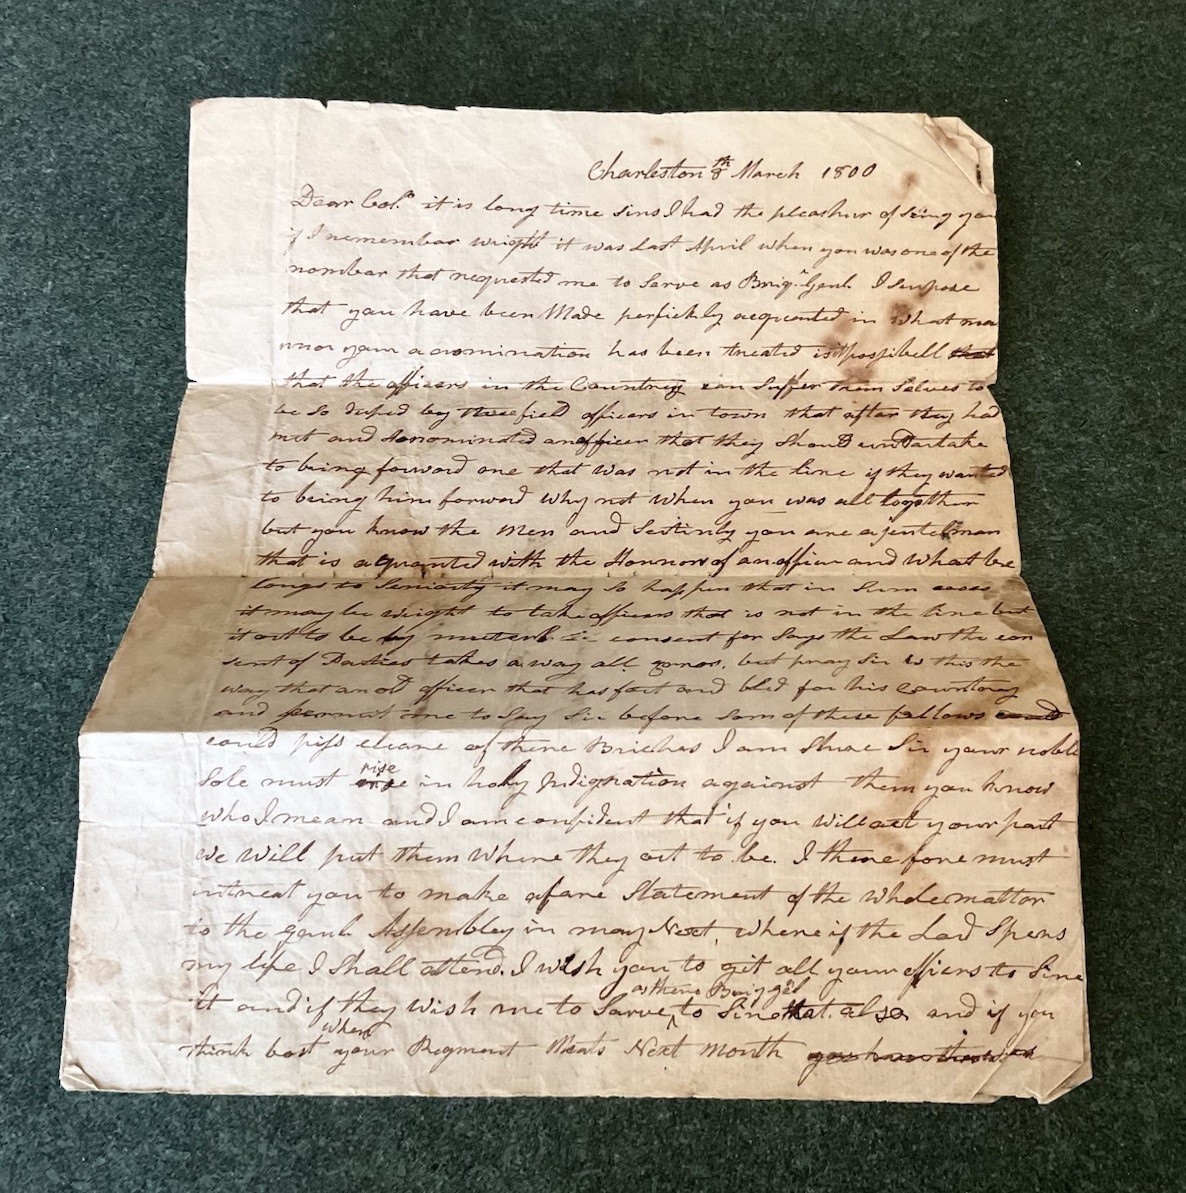 Charleston 8th March 1800
Dear Col.o it is long time sins I had the pleashur of Seing you
if I remember wright it was Last April when you was one of the
nombar that requested me to Sarve as Brig.r Genl. I Supose
that you have been Made perfickly aequented in what ma
nnor your a nomination has been treated is it possibell that
that the officers in the Countrey can Suffer them Selves to
be So duped by three field officers in town that after they had
met and nominated an officer that they Should undartake
to bring forward one that was not in the Line if they wanted
to bring him forward why not when you was all together
but you know the Men and Sertinly you are a jentelman
that is aquanted with the Honnor of an officer and what be
Longs to Seniority it may So happen that in Sum cases
it may be wright to take officers that is not in the Line but
it out to be by consent for Says the Law the con
sent of Parties takes a way all error. but pray Sir is this the
way that an old officer that has fout and bled for his Countrey
and permit me to Say Sir before Som of these fellows could
could piss cleare of there Briches I am Shure Sir your noble
Sole must rise in holy Indignation against them you know
who I mean and I am confident that if you will act your part
we will put them Where they out to be. I there fore must
intreat you to make a fare Statement of the Whole mattor
to the Genl Assembley in may Next, where if the Lord Spers
my life I Shall attend. I wish you to git all your officers to Sine
it and if they wish me to Sarve as there Brigg.l to Sine that also and if you
think best when your Regment Meats Next month